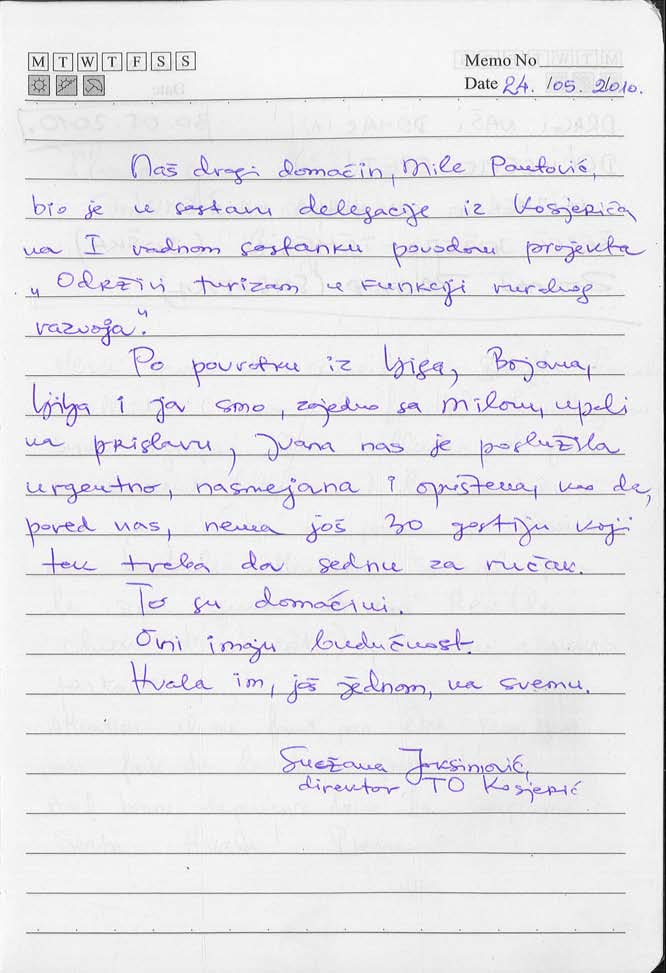 M T W T F S S
Memo No
Date 24. /05. 2010.
Naš dragi domaćin, Mile Pantović,
bio je u sastavu delegacije iz Kosjerića
na I radnom sastanku povodom projekta
„Održivi turizam u funkciji ruralnog
razvoja."
Po povratku iz Ljiga, Bojana,
Ljilja i ja smo, zajedno sa Milom, upali
na pristavu, Ivana nas je poslužila
urgentno, nasmejana i opuštena, kao da,
pored nas, nema još 30 gostiju koji
tek treba da sednu za ručak.
To su domaćini.
Oni imaju budućnost.
Hvala im, još jednom, na svemu.
Snežana Joksimović,
direktor TO Kosjerić